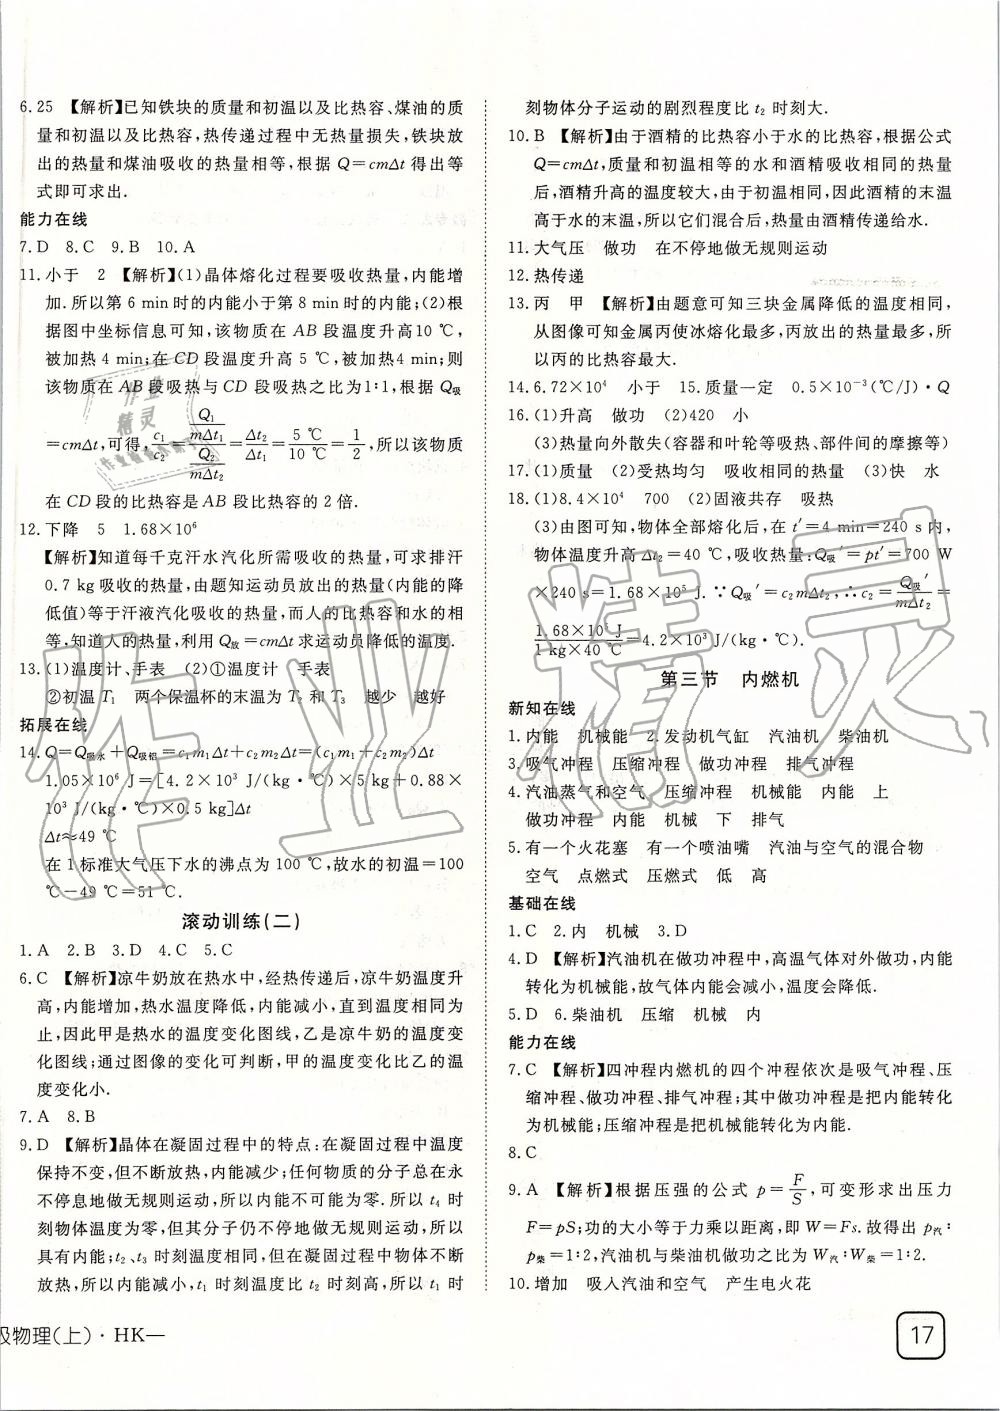 6.25 【解析】已知铁块的质量和初温以及比热容、煤油的质
量和初温以及比热容,热传递过程中无热量损失,铁块放
出的热量和煤油吸收的热量相等,根据 Q=cmΔt 得出等
式即可求出.
能力在线
7.D 8.C 9.B 10.A
11.小于 2 【解析】(1)晶体熔化过程要吸收热量,内能增
加.所以第 6 min 时的内能小于第 8 min 时的内能;(2)根
据图中坐标信息可知,该物质在 AB 段温度升高10 ℃,
被加热 4 min;在 CD 段温度升高 5 ℃,被加热4 min;则
该物质在 AB 段吸热与 CD 段吸热之比为1∶1,根据 Q吸
=cmΔt,可得,c₁/c₂=(Q₁/mΔt₁)/(Q₂/mΔt₂)=Δt₂/Δt₁=5 ℃/10 ℃=1/2,所以该物质
在 CD 段的比热容是 AB 段比热容的 2 倍.
12.下降 5 1.68×10⁶
【解析】知道每千克汗水汽化所需吸收的热量,可求排汗
0.7 kg 吸收的热量,由题知运动员放出的热量(内能的降
低值)等于汗液汽化吸收的热量,而人的比热容和水的相
等,知道人的热量,利用 Q放=cmΔt 求运动员降低的温度.
13.(1)温度计、手表 (2)①温度计 手表
②初温 T₁ 两个保温杯的末温为 T₂ 和 T₃ 越少 越好
拓展在线
14.Q=Q吸水+Q吸铝=c₁m₁Δt+c₂m₂Δt=(c₁m₁+c₂m₂)Δt
1.05×10⁶ J=[4.2×10³ J/(kg·℃)×5 kg+0.88×
10³ J/(kg·℃)×0.5 kg]Δt
Δt≈49 ℃
在 1 标准大气压下水的沸点为 100 ℃,故水的初温=100
℃-49 ℃=51 ℃.
滚动训练(二)
1.A 2.B 3.D 4.C 5.C
6.C 【解析】凉牛奶放在热水中,经热传递后,凉牛奶温度升
高,内能增加,热水温度降低,内能减小,直到温度相同为
止,因此甲是热水的温度变化图线,乙是凉牛奶的温度变
化图线;通过图像的变化可判断,甲的温度变化比乙的温
度变化小.
7.A 8.B
9.D 【解析】晶体在凝固过程中的特点:在凝固过程中温度
保持不变,但不断放热,内能减少;任何物质的分子总在永
不停息地做无规则运动,所以内能不可能为零.所以 t₄ 时
刻物体温度为零,但其分子仍不停地做无规则运动,所以
具有内能;t₂、t₃ 时刻温度相同,但在凝固过程中物体不断
放热,所以内能减小,t₁ 时刻温度比 t₂ 时刻高,所以 t₁ 时
刻物体分子运动的剧烈程度比 t₂ 时刻大.
10.B 【解析】由于酒精的比热容小于水的比热容,根据公式
Q=cmΔt,质量和初温相等的水和酒精吸收相同的热量
后,酒精升高的温度较大,由于初温相同,因此酒精的末温
高于水的末温,所以它们混合后,热量由酒精传递给水.
11.大气压 做功 在不停地做无规则运动
12.热传递
13.丙 甲 【解析】由题意可知三块金属降低的温度相同,
从图像可知金属丙使冰熔化最多,丙放出的热量最多,所
以丙的比热容最大.
14.6.72×10⁴ 小于 15.质量一定 0.5×10⁻³(℃/J)·Q
16.(1)升高 做功 (2)420 小
(3)热量向外散失(容器和叶轮等吸热、部件间的摩擦等)
17.(1)质量 (2)受热均匀 吸收相同的热量 (3)快 水
18.(1)8.4×10⁴ 700 (2)固液共存 吸热
(3)由图可知,物体全部熔化后,在 t′=4 min=240 s内,
物体温度升高 Δt₂=40 ℃,吸收热量:Q吸′=pt′=700 W
×240 s=1.68×10⁵ J.∵Q吸′=c₂mΔt₂,∴c₂=Q吸′/mΔt₂=
1.68×10⁵ J/1 kg×40 ℃=4.2×10³ J/(kg·℃).
第三节 内燃机
新知在线
1.内能 机械能 2.发动机气缸 汽油机 柴油机
3.吸气冲程 压缩冲程 做功冲程 排气冲程
4.汽油蒸气和空气 压缩冲程 机械能 内能 上
做功冲程 内能 机械 下 排气
5.有一个火花塞 有一个喷油嘴 汽油与空气的混合物
空气 点燃式 压燃式 低 高
基础在线
1.C 2.内 机械 3.D
4.D 【解析】汽油机在做功冲程中,高温气体对外做功,内能
转化为机械能,故气体内能会减小,温度会降低.
5.D 6.柴油机 压缩 机械 内
能力在线
7.C 【解析】四冲程内燃机的四个冲程依次是吸气冲程、压
缩冲程、做功冲程、排气冲程;其中做功冲程是把内能转化
为机械能;压缩冲程是把机械能转化为内能.
8.C
9.A 【解析】根据压强的公式 p=F/S,可变形求出压力
F=pS;功的大小等于力乘以距离,即 W=Fs.故得出 p汽∶
p柴=1∶2,汽油机与柴油机做功之比为 W汽∶W柴=1∶2.
10.增加 吸入汽油和空气 产生电火花
级物理(上)·HK—
17
作业精灵